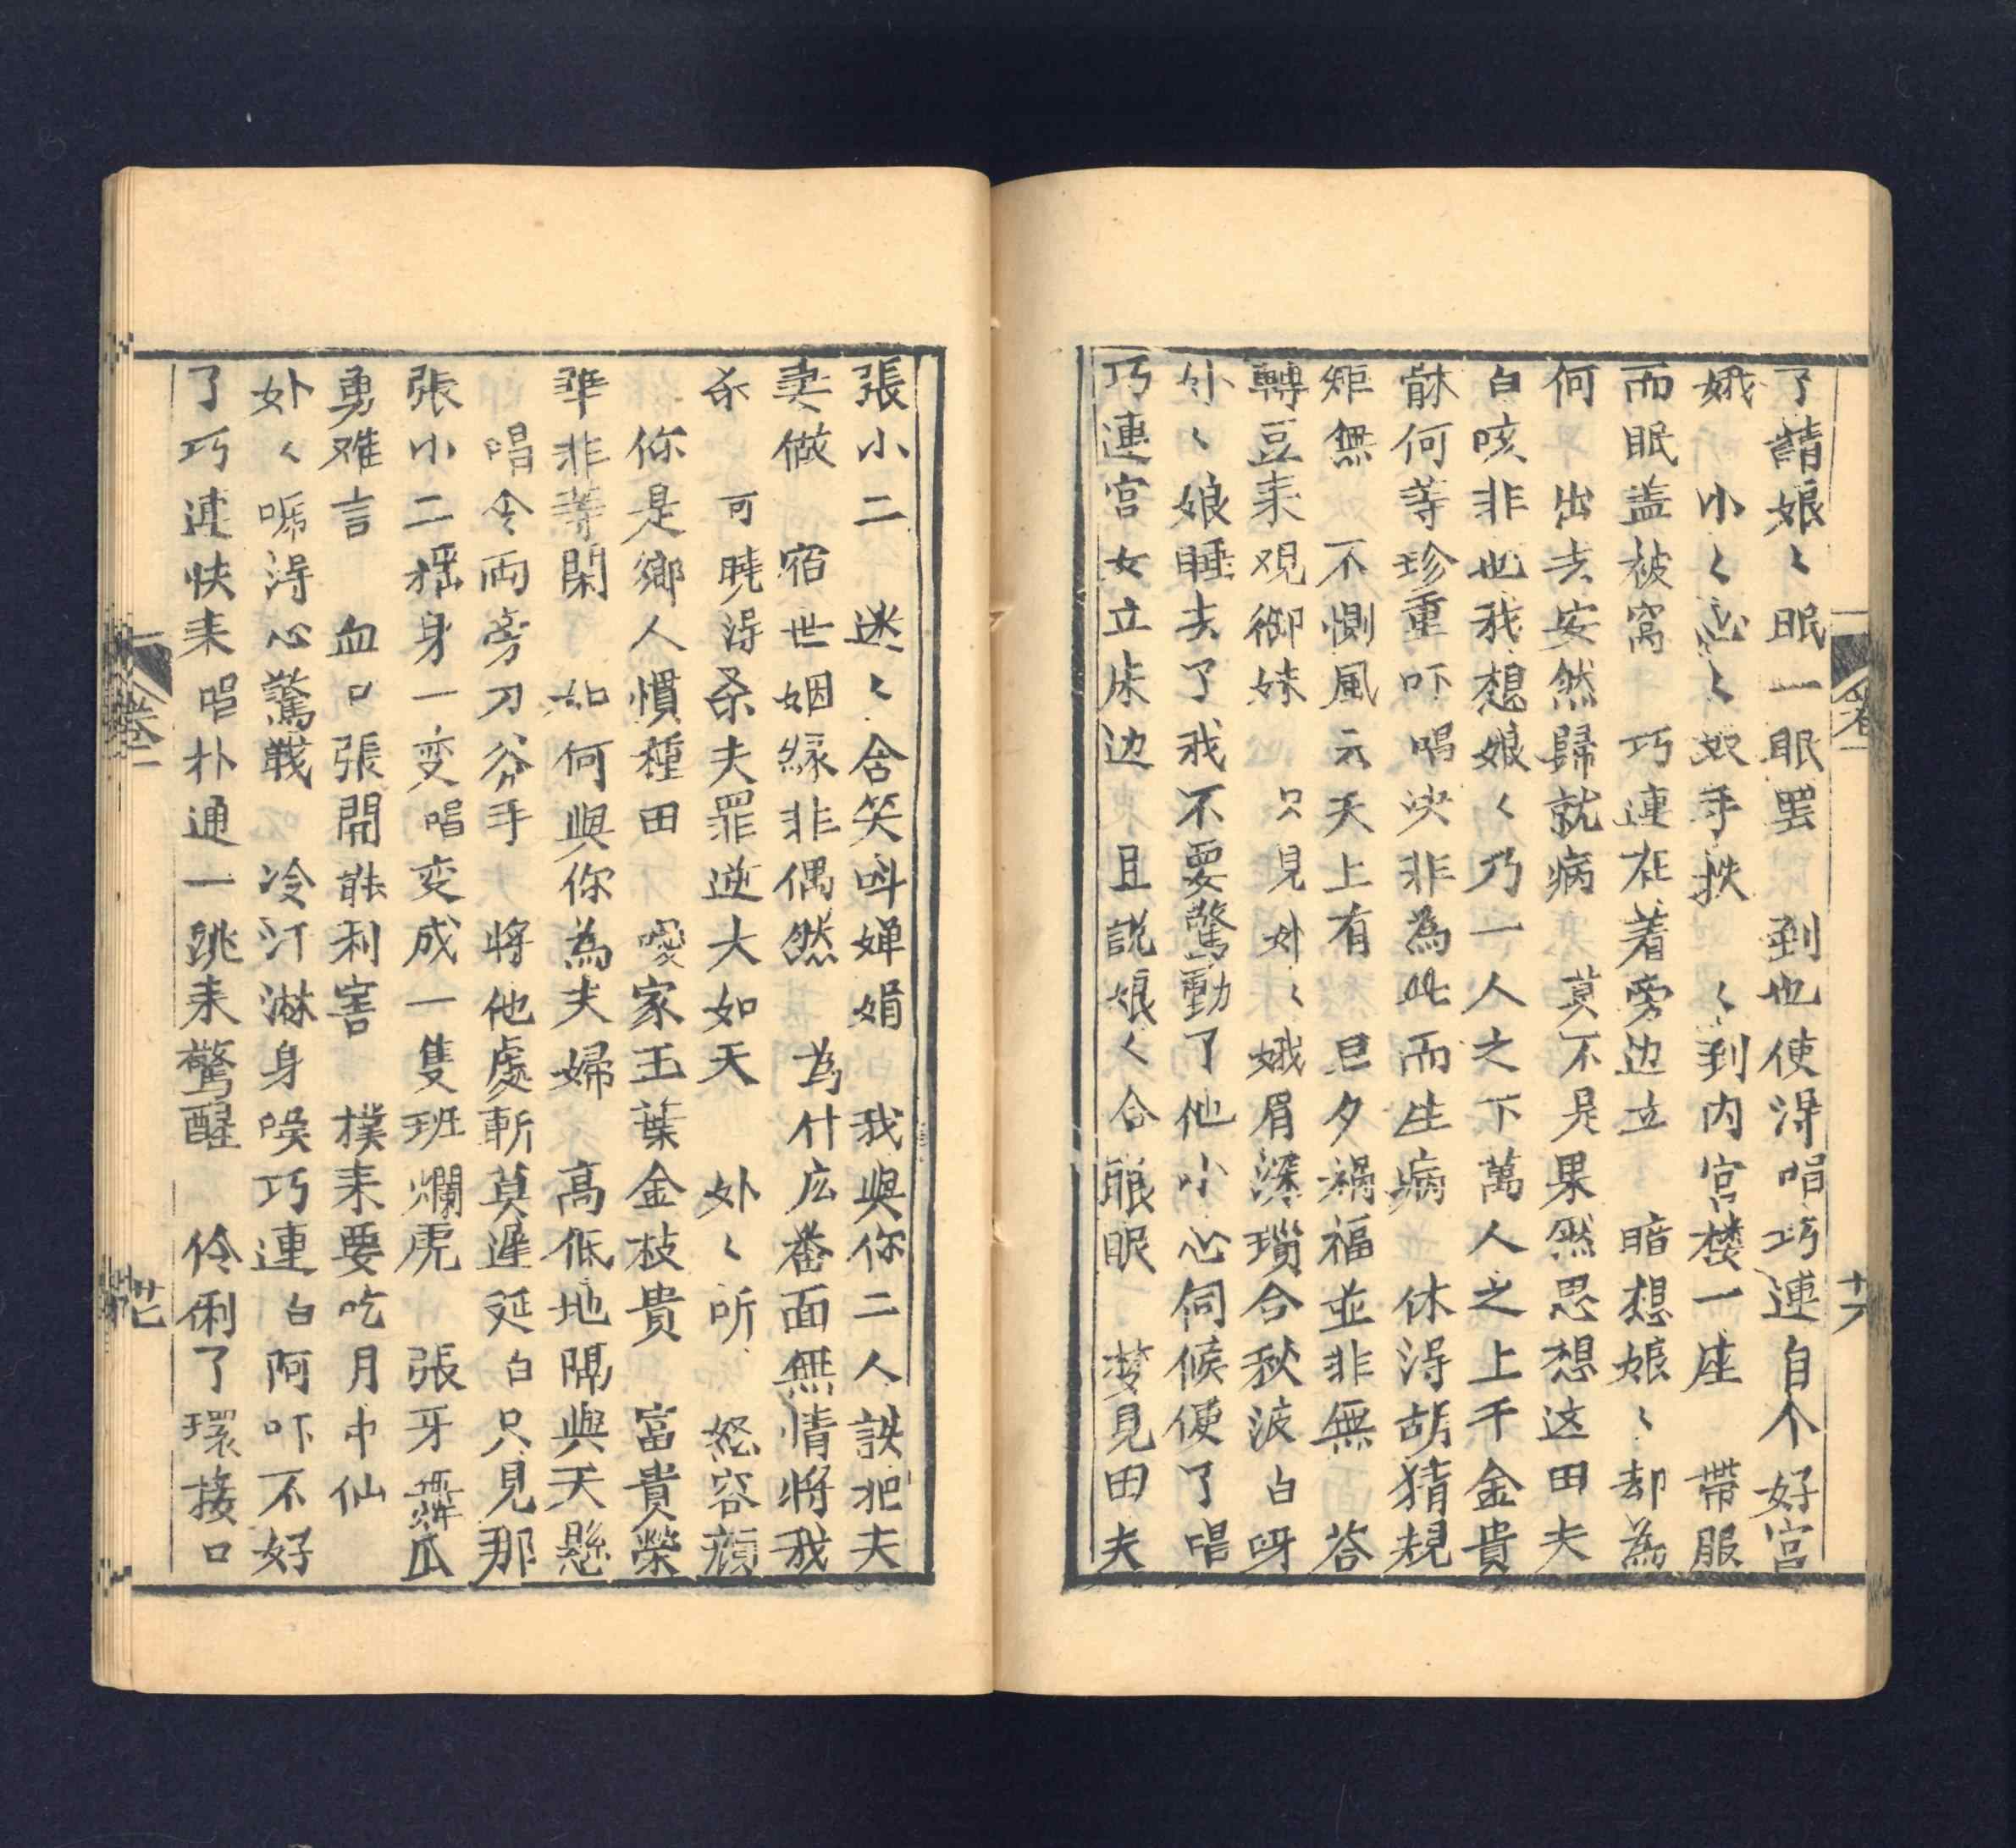 了請娘〻眠一眠罢　到也使淂唱巧連自个好宫
娥小〻心〻奴手挟　〻到内宫楼一座　帶服
而眠盖被窩　巧連在着旁边立　暗想娘〻却為
何　出去安然歸就病　莫不是果然思想这田夫
白咳非也我想娘〻乃一人之下萬人之上千金貴
躰何等珍重吓唱决非為此而生病　休淂胡猜規
矩無　不惻風云天上有　旦夕禍福並非無　答
轉豆耒观御妹　只見外〻娥眉深瑣合秋波白呀
外〻娘睡去了我不要驚動了他小心伺候便了唱
巧連宫女立床边　且説娘〻合眼眠　梦見田夫
卷一
十六
張小二　迷〻含笑呌婵娟　我與你二人該把夫
妻做　宿世姻縁非偶然　為什庅番面無情將我
杀　可曉淂杀夫罪逆大如天　外〻听　怒容顔
你是鄉人慣種田　嗳家玉葉金枝貴　富貴榮
華非等閑　如何與你為夫婦　高低地隔與天懸
唱令両旁刀斧手　將他處斬莫遲延白只見那
張小二摇身一变唱变成一隻班斓虎　張牙舞爪
勇难言　血口張開能利害　撲耒要吃月中仙
外〻唬淂心驚戰　冷汗淋身唤巧連白阿吓不好
了巧連快耒唱朴通一跳耒驚醒　伶俐了環接口
卷一